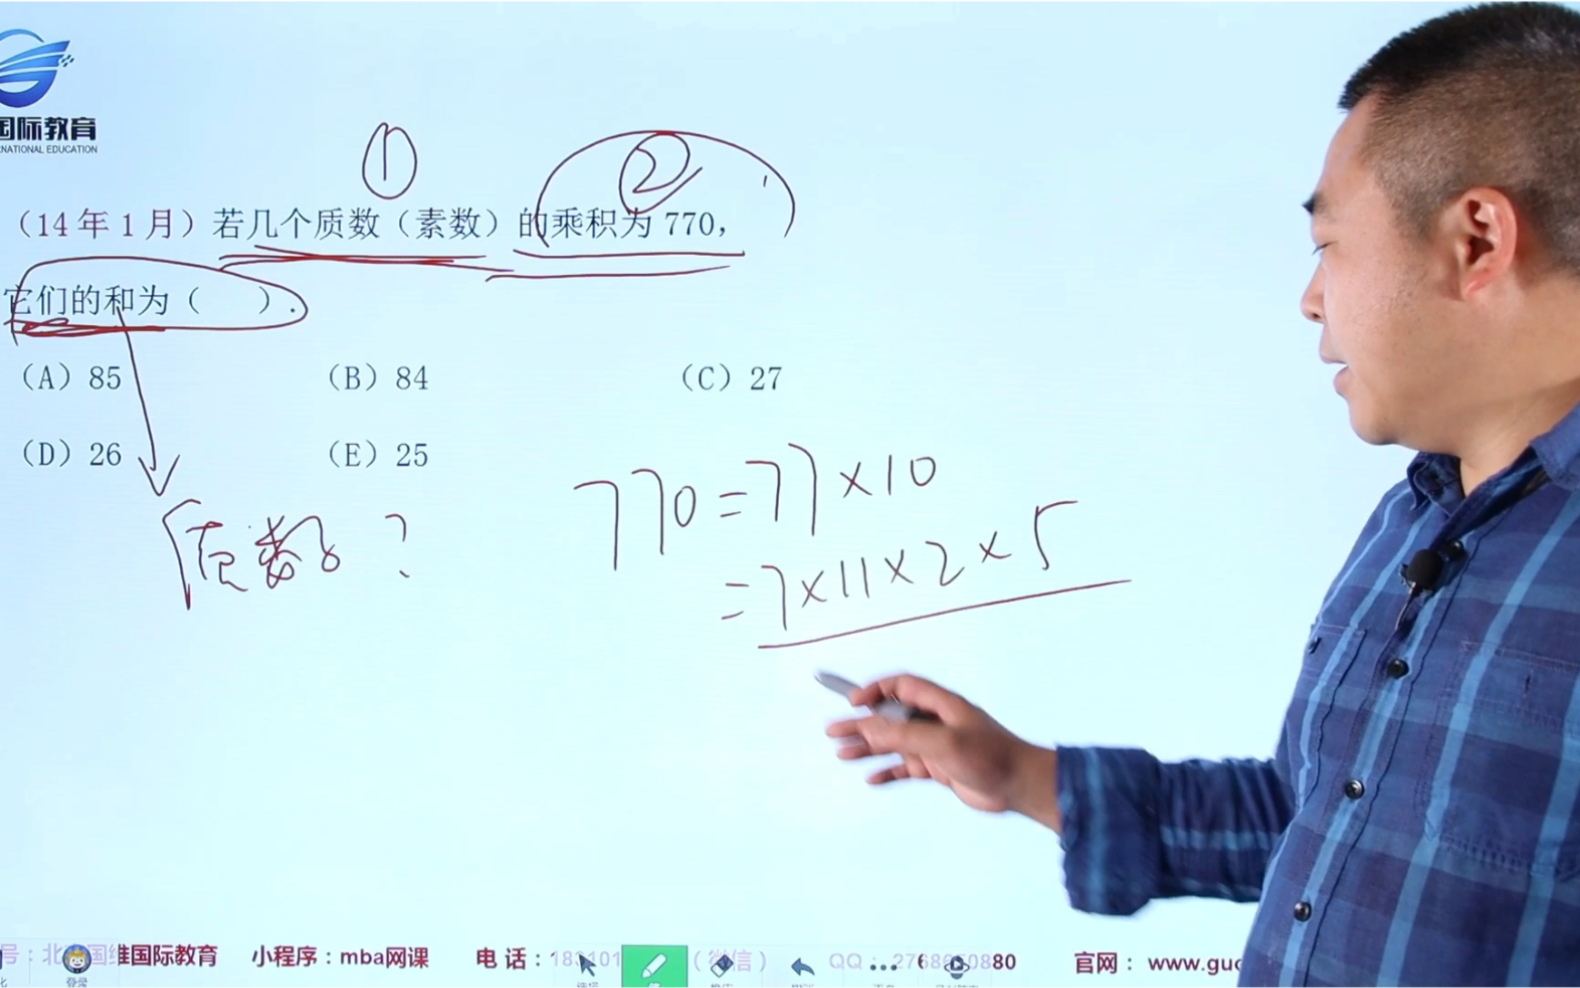 国际教育
NATIONAL EDUCATION
① ②
（14 年 1 月）若几个质数（素数）的乘积为 770，
它们的和为（ ）.
（A）85 （B）84 （C）27
（D）26 （E）25
770=77×10
=7×11×2×5
质数？
维国际教育 小程序：mba网课 电 话： QQ： 官网： www.guo